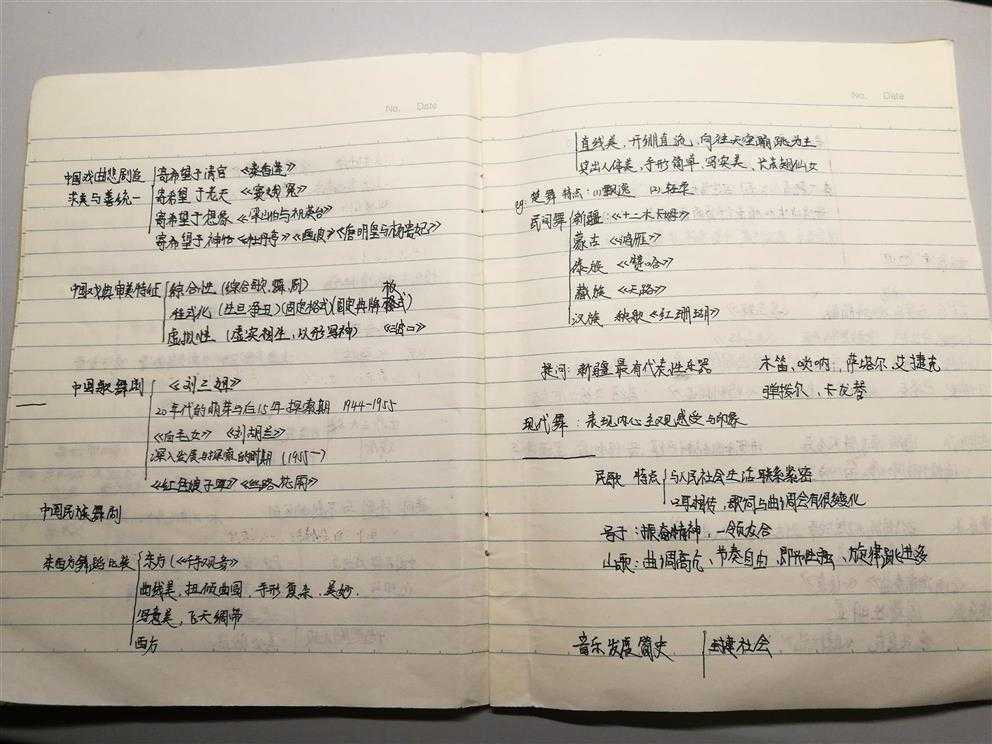 No. Date
中国戏曲悲剧追 寄希望于清官 《秦香莲》
求美与善统一 寄希望于老天 《窦娥冤》
寄希望于想像 《梁山伯与祝英台》
寄希望于神怪《牡丹亭》《画皮》《唐明皇与杨贵妃》
中国戏曲审美特征 综合性 (综合歌、舞、剧)
程式化 (生旦净丑)(固定格式)(固定曲牌板格式)
虚拟性 (虚实相生,以形写神)
中国歌舞剧 《刘三姐》
20年代的萌芽与后15年探索期 1944-1955
《白毛女》 《刘胡兰》
深入发展与探索的时期 (1955—)
《红色娘子军》《丝路花雨》
中国民族舞剧
东西方舞蹈比较 东方 (《千手观音》
曲线美,扭倾曲圆,手形复杂,美妙.
写意美,飞天绸带
西方
No. Date
直线美,开绷直流,向往天空蹦跳为主
突出人体美,手形简单,写实美,长有翅仙女
eg: 楚舞 特点:(1)飘逸 (2)轻柔
民间舞 新疆:《十二木卡姆》
蒙古 《鸿雁》
傣族 《赞哈》
藏族 《天路》
汉族 秧歌《红珊瑚》
提问:新疆最有代表性乐器 木笛、唢呐、萨塔尔、艾捷克
弹拨尔、卡龙
现代舞:表现内心主观感受与印象
民歌 特点 与人民社会生活联系紧密
口耳相传,歌词与曲调会有很多变化
号子:振奋精神,一领众合
山歌:曲调高亢、节奏自由、即兴性强、旋律跳进多
音乐发展简史 封建社会